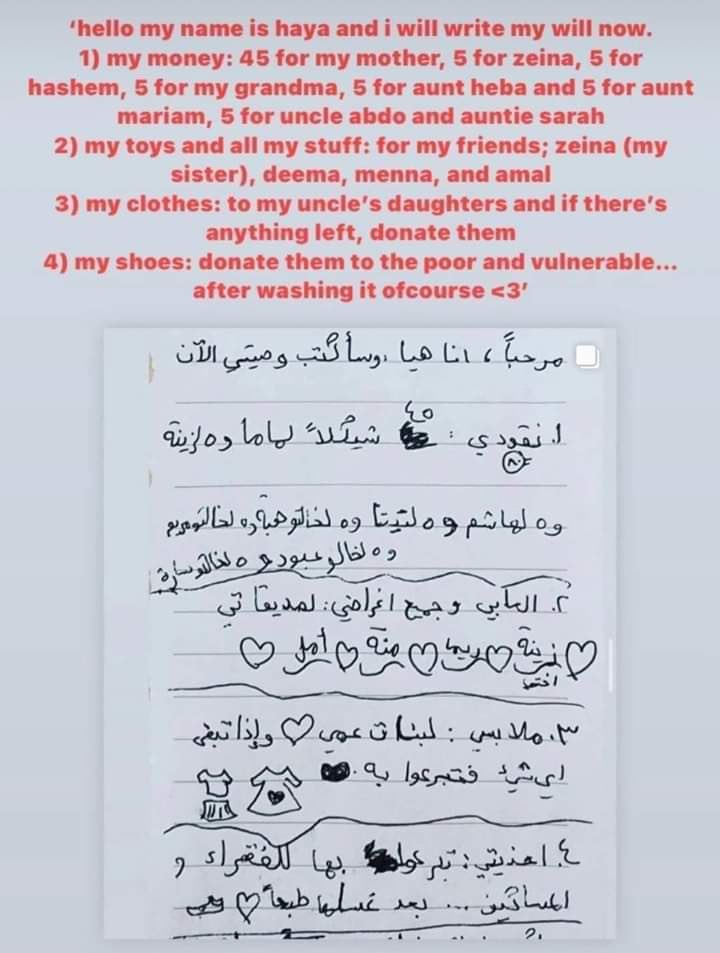 ‘hello my name is haya and i will write my will now.
1) my money: 45 for my mother, 5 for zeina, 5 for
hashem, 5 for my grandma, 5 for aunt heba and 5 for aunt
mariam, 5 for uncle abdo and auntie sarah
2) my toys and all my stuff: for my friends; zeina (my
sister), deema, menna, and amal
3) my clothes: to my uncle’s daughters and if there’s
anything left, donate them
4) my shoes: donate them to the poor and vulnerable...
after washing it ofcourse <3’
مرحباً، انا هيا، وسأكتب وصيتي الآن
٤٥
١. نقودي: شيكلاً لماما و٥ لزينة
٨٠
و٥ لهاشم و٥ لتيتا و٥ لخالتو هبة و٥ لخالتو مريم
و٥ لخالو عبود و٥ لخالتو سارة
٢. العابي وجميع اغراضي: لصديقاتي
♡ زينة ♡ ريما ♡ منة ♡ أمل ♡
اختي
٣. ملابسي: لبنات عمي ♡ وإذا تبقى
اي شيئ فتبرعوا به.
٤. احذيتي: تبرعوا بها للفقراء و
المساكين ... بعد غسلها طبعاً ♡